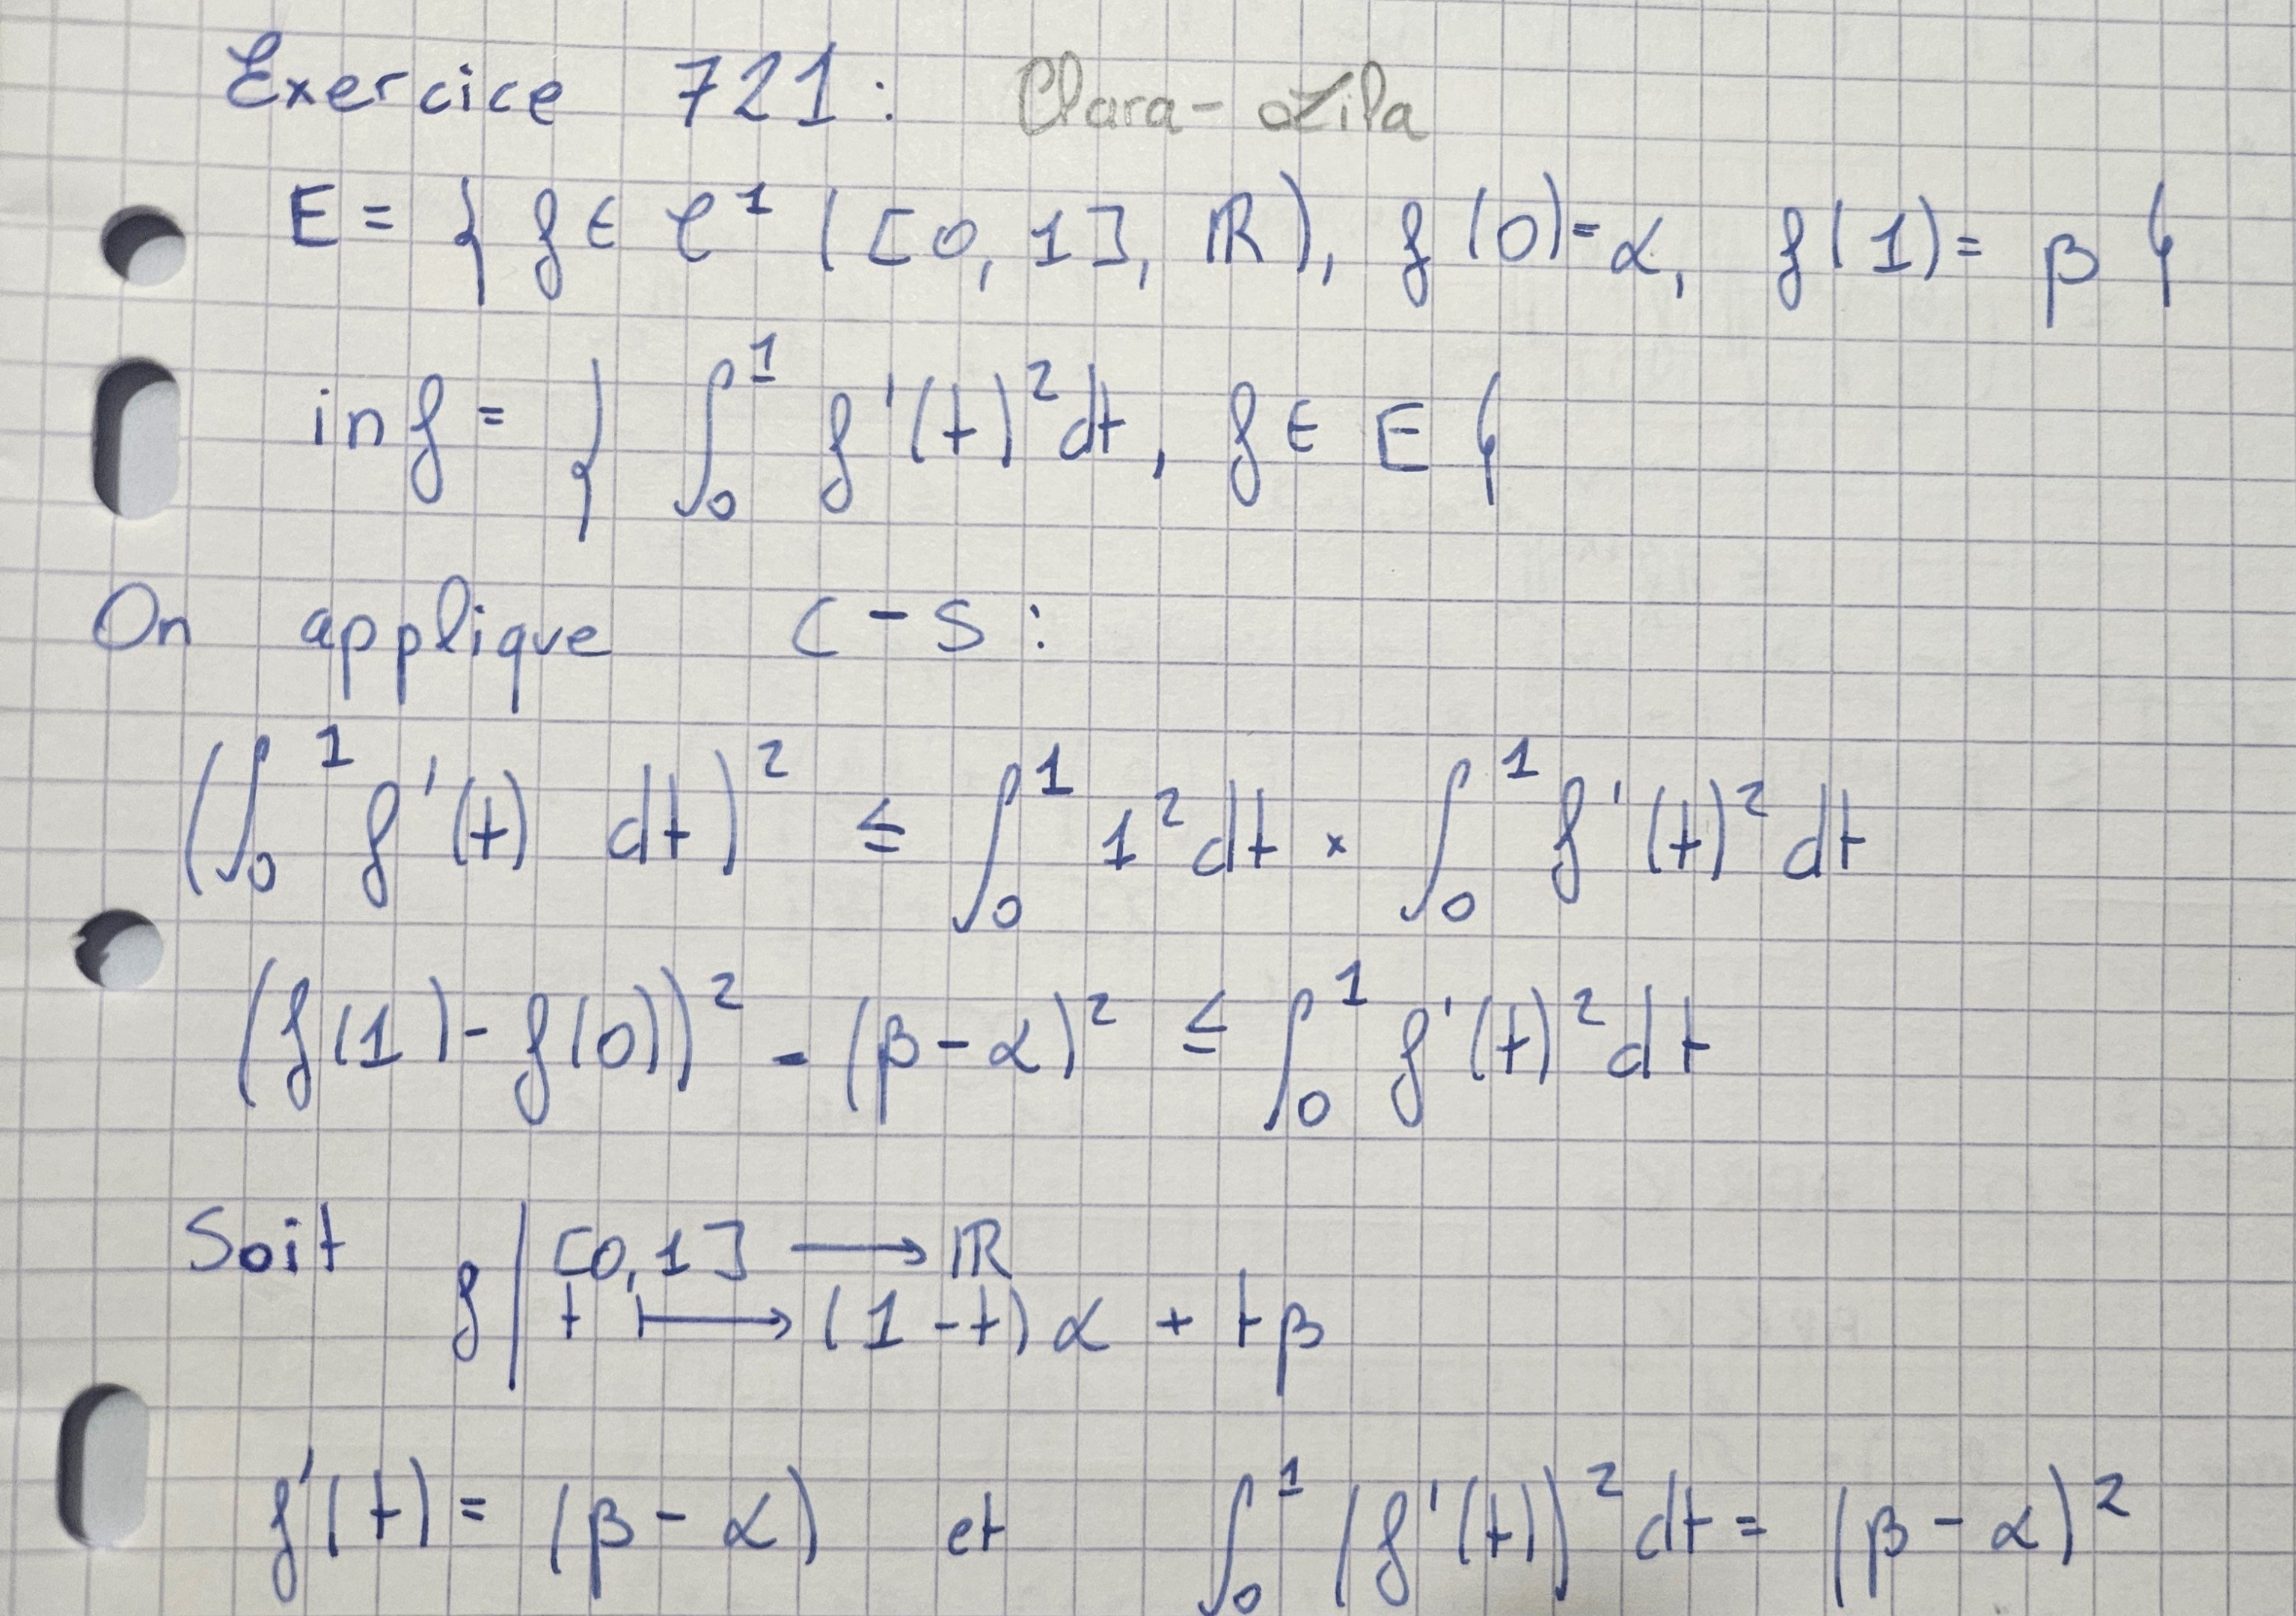 Exercice 721: Clara-Lila
E = { f ∈ C¹ ([0, 1], ℝ), f(0) = α, f(1) = β }
inf = { ∫₀¹ f'(t)² dt, f ∈ E }
On applique C-S:
(∫₀¹ f'(t) dt)² ≤ ∫₀¹ 1² dt × ∫₀¹ f'(t)² dt
(f(1) - f(0))² = (β - α)² ≤ ∫₀¹ f'(t)² dt
Soit f | [0, 1] ⟶ ℝ
t ⟼ (1 - t) α + tβ
f'(t) = (β - α) et ∫₀¹ (f'(t))² dt = (β - α)²